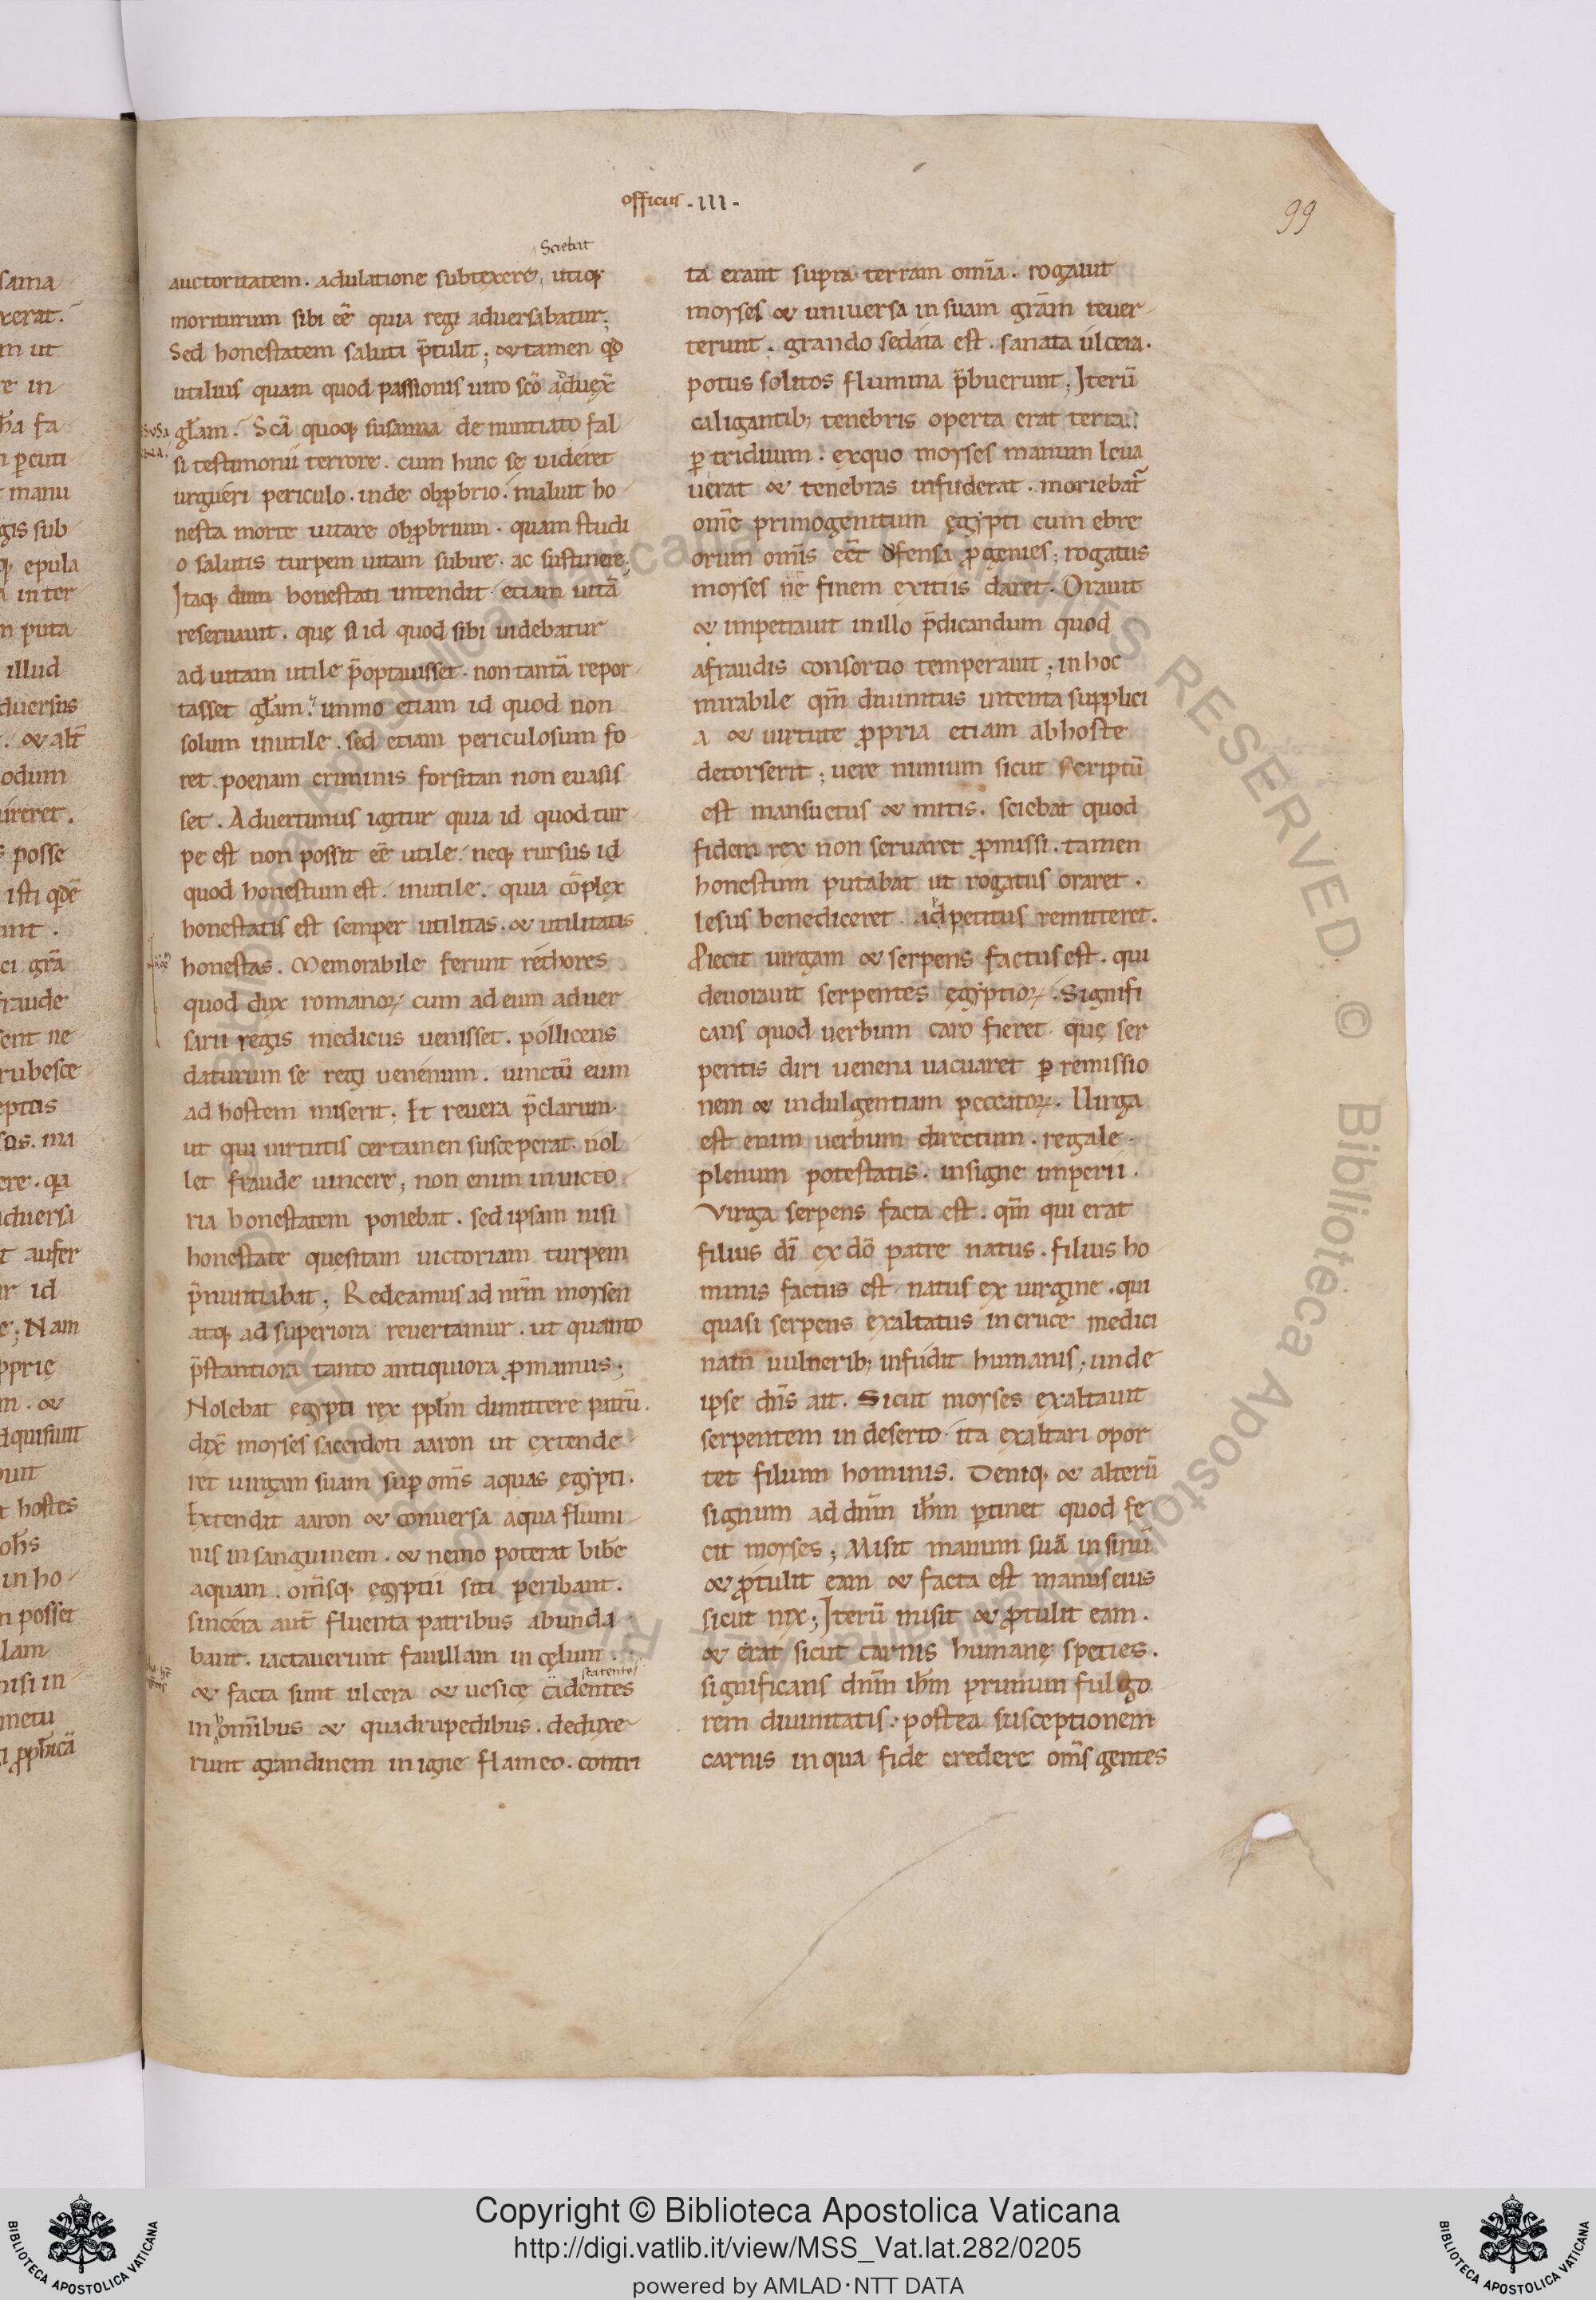 officiis .III.
99
Sciebat
auctoritatem. adulatione subtexere, utiq;
moriturum sibi eē quia regi adversabatur;
Sed honestatem saluti p̄tulit; & tamen qd̄
utilius quam quod passionis uiro sc̄o aduex̄
gl̄am. Sc̄a quoq; susanna denuntiato fal
si testimonii terrore. cum hinc se uideret
urgueri periculo. inde obꝓbrio. maluit ho-
nesta morte uitare obꝓbrium. quam studi
o salutis turpem uitam subire. ac sustinere;
Itaq; dum honestati intendit etiam uitā
reseruauit. quę si id quod sibi uidebatur
ad uitam utile p̄optauisset. non tantā repor-
tasset gl̄am. immo etiam id quod non
solum inutile. sed etiam periculosum fo-
ret. poenam criminis forsitan non euasis-
set. Aduertimus igitur quia id quod tur-
pe est non possit eē utile. neq; rursus id
quod honestum est. inutile. quia cōplex
honestatis est semper utilitas. & utilitatis
honestas. Memorabile ferunt rethores
quod dux romanoꝝ cum ad eum aduer-
sarii regis medicus uenisset. pollicens
daturum se regi uenenum. uinctū eum
ad hostem miserit; Et reuera p̄clarum.
ut qui uirtutis certamen susceperat. nol-
let fraude uincere; non enim in uicto-
ria honestatem ponebat. sed ipsam nisi
honestate quęsitam uictoriam turpem
p̄nuntiabat; Redeamus ad nr̄m moysen
atq; ad superiora reuertamur. ut quanto
p̄stantiora tanto antiquiora ꝓmamus;
Nolebat egypti rex ppl̄m dimittere patrū.
dix̄ moyses sacerdoti aaron ut extende-
ret uirgam suam suꝑ om̄s aquas ęgypti.
Extendit aaron & conuersa aqua flumi-
nis in sanguinem. & nemo poterat bibe
aquam. om̄sq; egyptii siti peribant.
sincera aut̄ fluenta patribus abunda-
bant. iactauerunt fauillam in cęlum.
statentes
& facta sunt ulcera & uesicę cadentes
in omībus & quadrupedibus. deduxe-
runt grandinem in igne flameo. contri
ta erant supra terram omīa. rogauit
moyses & uniuersa in suam grām reuer-
terunt. grando sedata est. sanata ulcera.
potus solitos flumina p̄buerunt; Iterū
caligantib; tenebris operta erat terra.
ꝑ triduum. exquo moyses manum leua
uerat & tenebras infuderat. moriebat᷑
om̄e primogenitum ęgypti cum ebre
orum om̄is eēt offensa ꝓgenies; rogatus
moyses ne finem exitiis daret. Orauit
& impetrauit in illo p̄dicandum quod
afraudis consortio temperauit; in hoc
mirabile qm̄ diuinitus intenta supplici
a & uirtute ꝓpria etiam ab hoste
detorserit; uere nimium sicut scriptū
est mansuetus & mitis. sciebat quod
fidem rex non seruaret ꝓmissi. tamen
honestum putabat ut rogatus oraret.
lesus benediceret. adpetitus remitteret.
Piecit uirgam & serpens factus est. qui
deuorauit serpentes ęgyptioꝝ. Signifi
cans quod uerbum caro fieret. quę ser
pentis diri uenena uacuaret ꝑ remissio
nem & indulgentiam peccatoꝝ. Uirga
est enim uerbum directum. regale.
plenum potestatis. insigne imperii.
Virga serpens facta est. qm̄ qui erat
filius dī ex dō patre natus. filius ho-
minis factus est natus ex uirgine. qui
quasi serpens exaltatus in cruce medici
nam uulnerib; infudit humanis; unde
ipse dn̄s ait. Sicut moyses exaltauit
serpentem in deserto ita exaltari opor
tet filium hominis. Deniq; & alterū
signum ad dnm̄ ihm̄ ꝑtinet quod fe
cit moyses; Misit manum suā in sinū
& ꝓtulit eam & facta est manus eius
sicut nix; Iterū misit & ꝓtulit eam.
& erat sicut carnis humanę species.
significans dnm̄ ihm̄ primum fulgo
rem diuinitatis. postea susceptionem
carnis in qua fide credere om̄s gentes
Copyright © Biblioteca Apostolica Vaticana
http://digi.vatlib.it/view/MSS_Vat.lat.282/0205
powered by AMLAD·NTT DATA
BIBLIOTECA APOSTOLICA VATICANA
BIBLIOTECA APOSTOLICA VATICANA